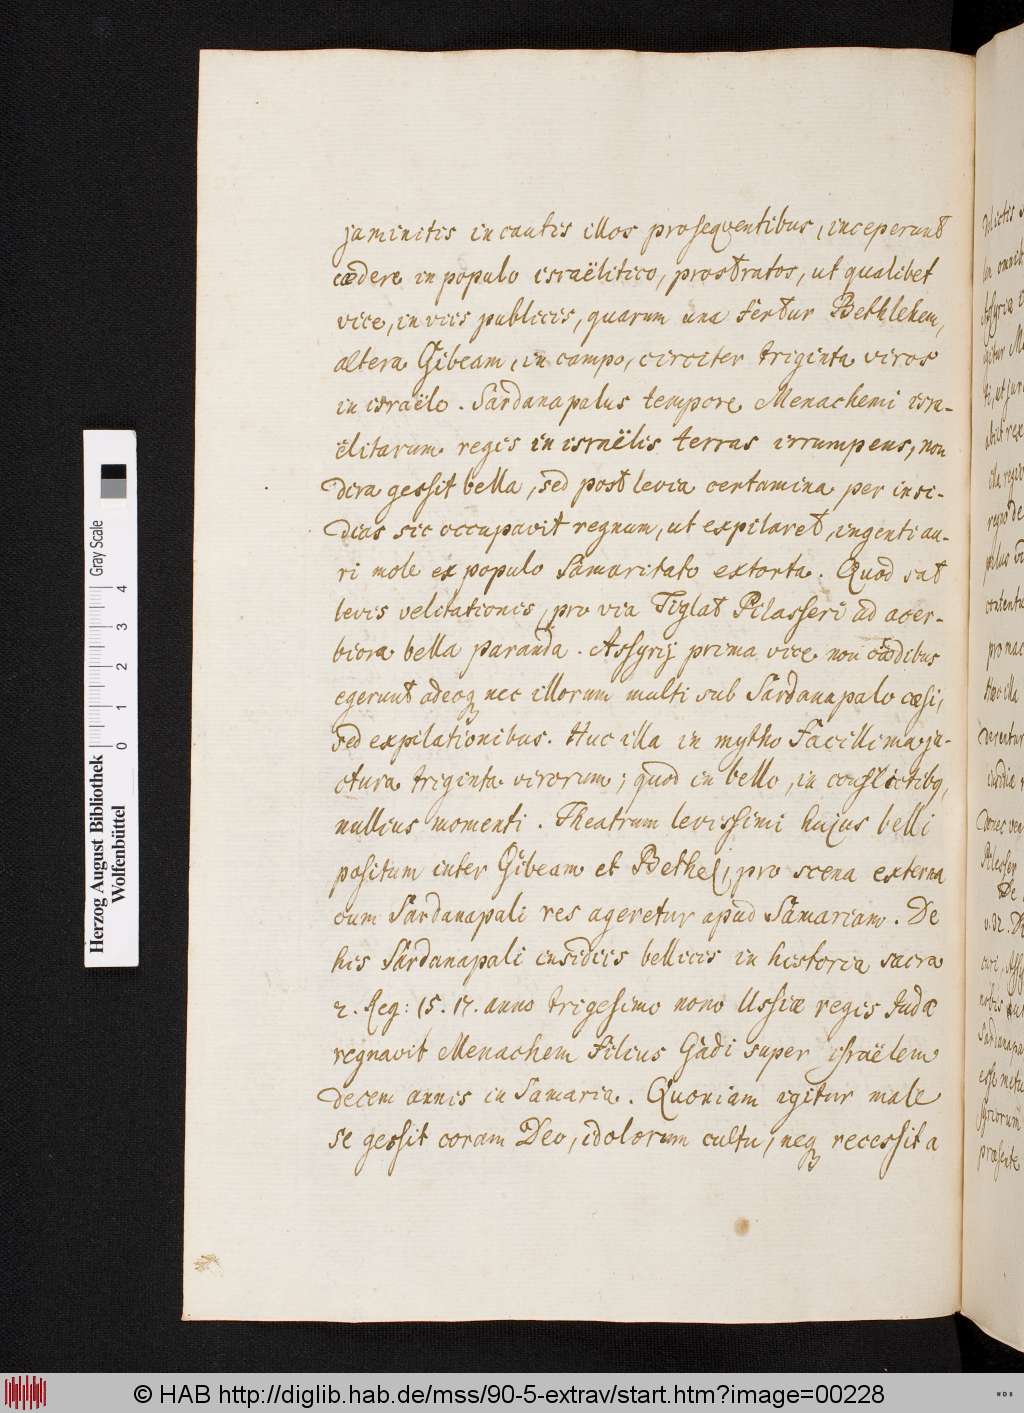 jaminitis incautis illos prosequentibus, inceperunt
cædere in populo israëlitico, prostratos, ut qualibet
vice, in viis publicis, quarum una fertur Bethlehem,
altera Gibeam, in campo, circiter triginta viros
in israële. Sardanapalus tempore Menachemi isra-
ëlitarum regis in israëlis terras irrumpens, non
dira gessit bella, sed post levia certamina per insi-
dias sic occupavit regnum, ut expilaret, ingenti au-
ri mole ex populo Samaritato extorta. Quod sat
levis velitationis, pro via Tiglat Pilasseri ad acer-
biora bella paranda. Assyrij prima vice non cædibus
egerunt adeoq nec illorum multi sub Sardanapalo cæsi,
sed expilationibus. Huc illa in mytho facillima ja-
ctura triginta virorum; quod in bello, in conflictibq,
nullius momenti. Theatrum levissimi hujus belli
positum inter Gibeam et Bethel, pro scena externa
cum Sardanapali res ageretur apud Samariam. De
his Sardanapali insidiis bellicis in historia sacra
2. Reg: 15. 17. anno trigesimo nono Ussiæ regis Judæ
regnavit Menachem filius Gadi super israëlem
decem annis in Samaria. Quoniam igitur male
se gessit coram Deo, idolorum cultu, neq recessit a
Herzog August Bibliothek
Wolfenbüttel
Gray Scale
0 1 2 3 4
© HAB http://diglib.hab.de/mss/90-5-extrav/start.htm?image=00228